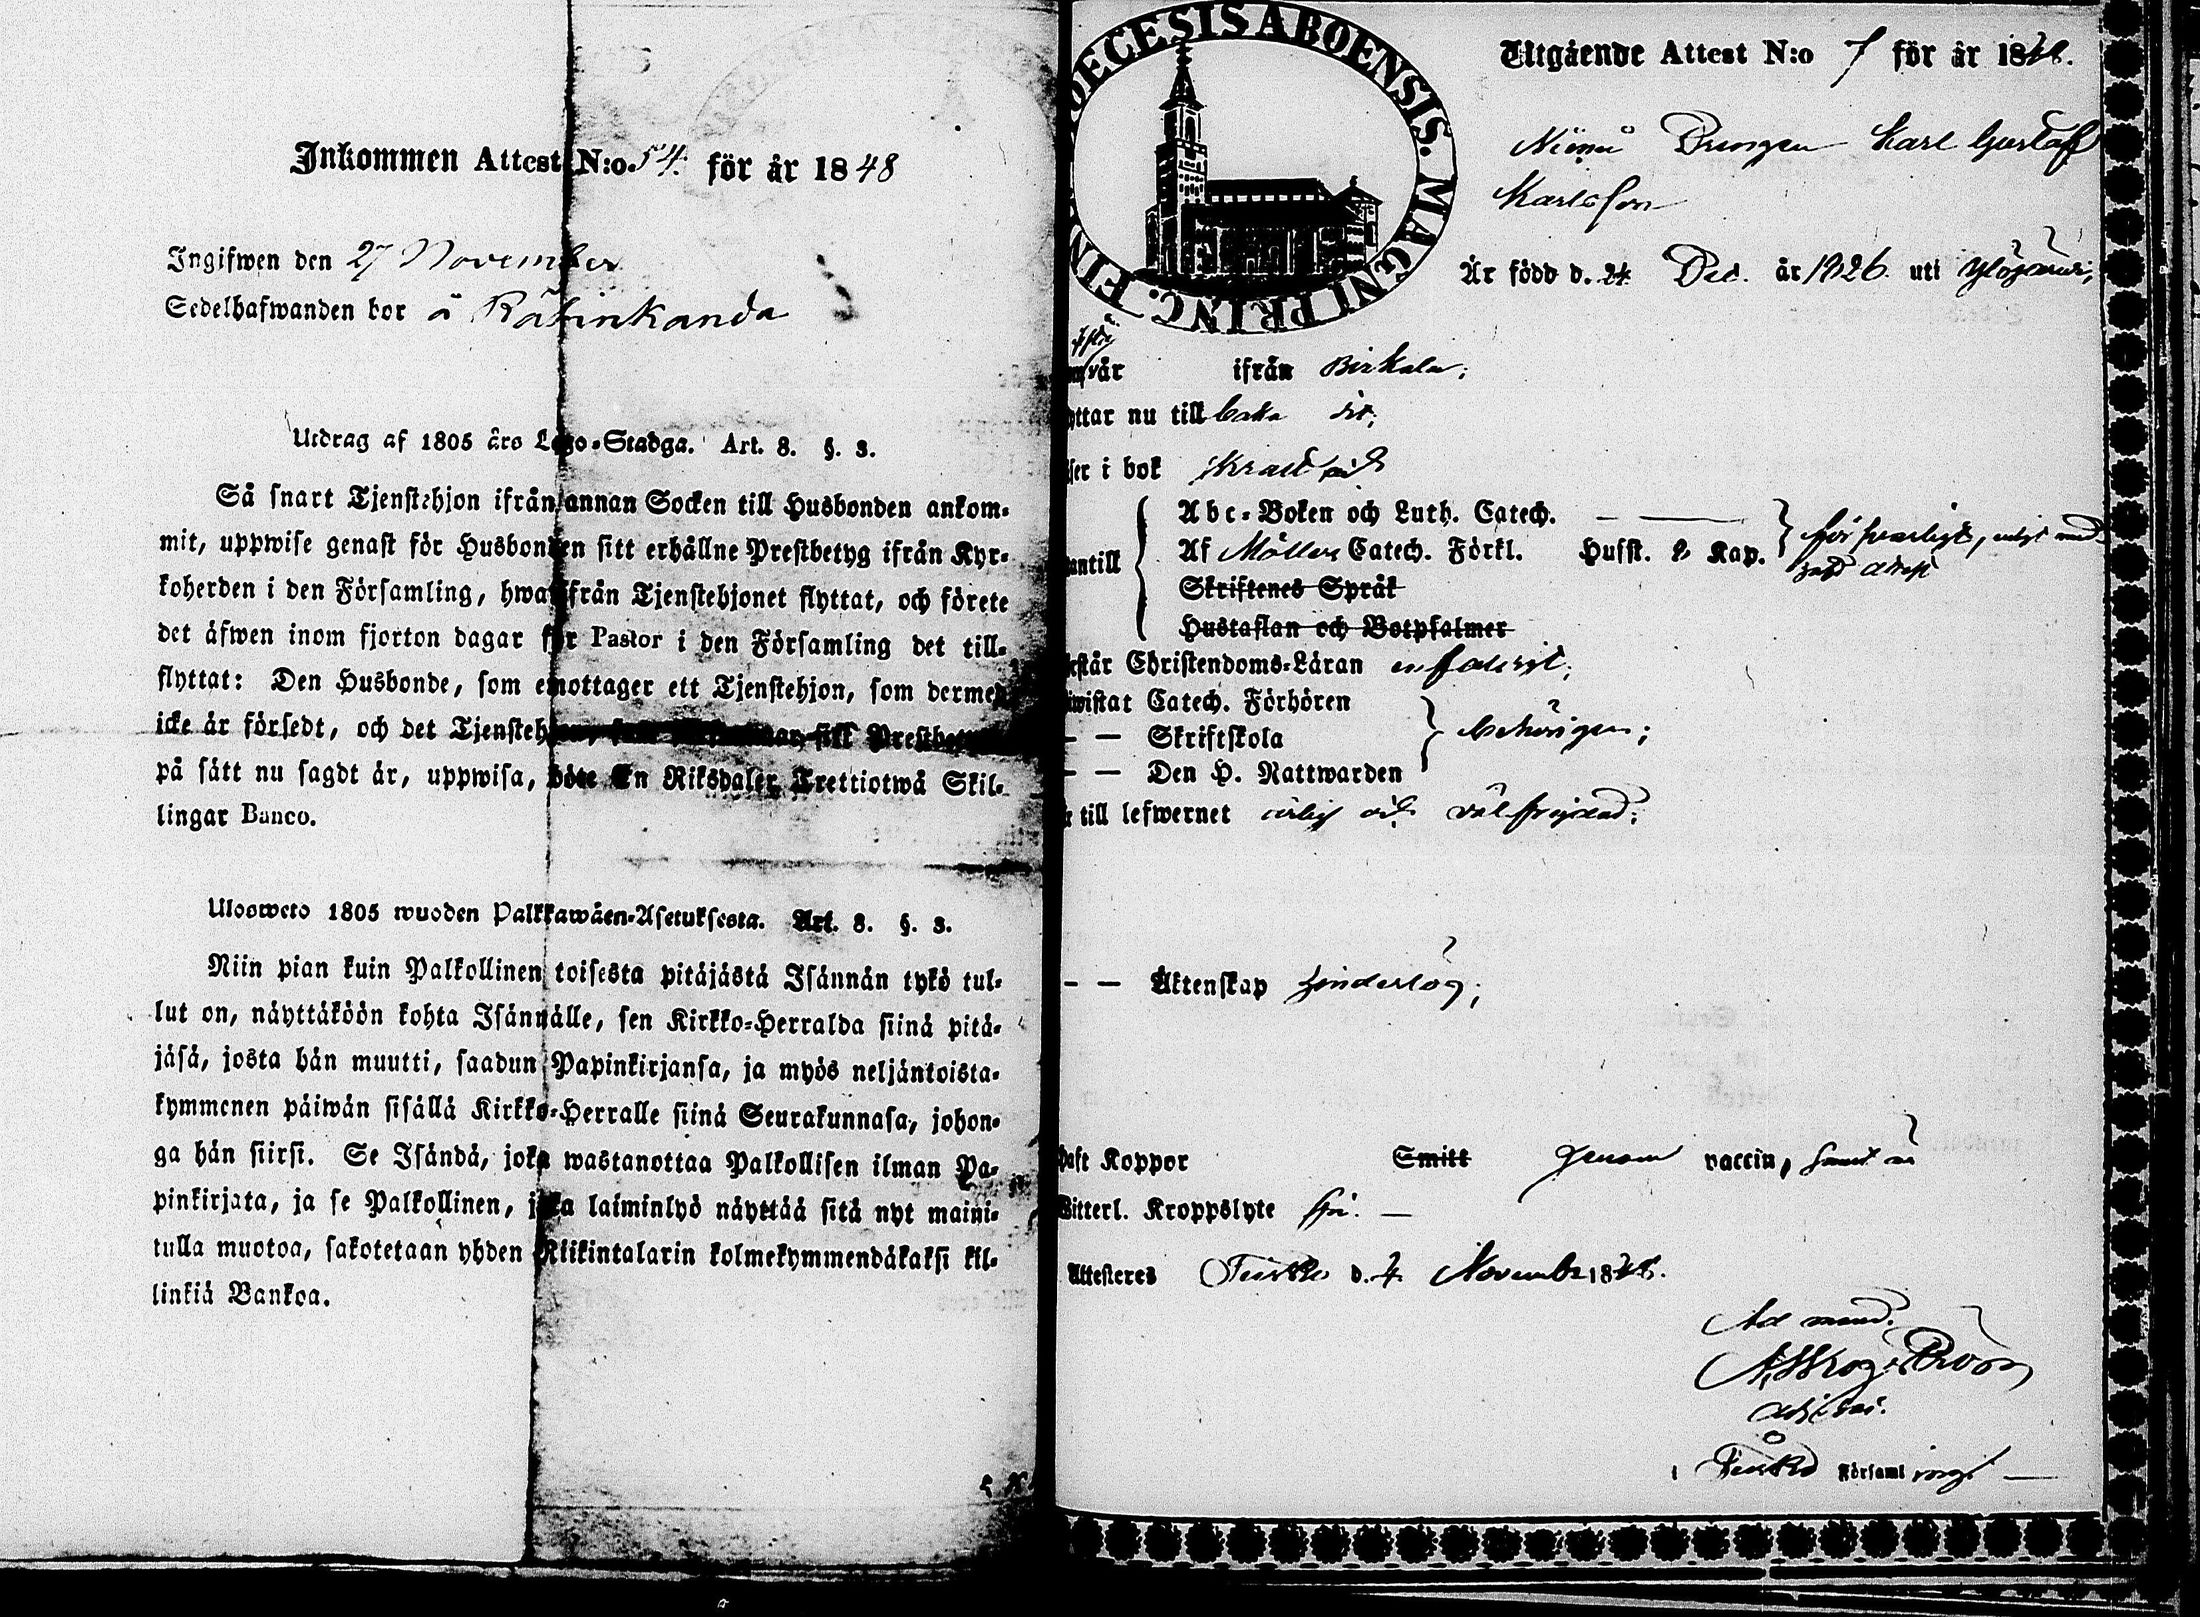 Inkommen Attest N:o. 54. för år 1848
Ingifwen den 27 November
Sedelhafwanden bor å Rätinkanda
Utdrag af 1805 års Lego-Stadga. Art. 8. §. 3.
Så snart Tjenstehjon ifrån annan Socken till Husbonden ankom-
mit, uppwise genast för Husbonden sitt erhållne Prestbetyg ifrån Kyr-
koherden i den Församling, hwarifrån Tjenstehjonet flyttat, och förete
det äfwen inom fjorton dagar för Pastor i den Församling det till-
flyttat: Den Husbonde, som emottager ett Tjenstehjon, som dermed
icke är försedt, och det Tjenstehjon, sitt Prestbetyg
på sätt nu sagdt är, uppwisa, böte En Riksdaler Trettiotwå Skil-
lingar Banco.
Ulosweto 1805 wuoden Palkkawäen-Asetuksesta. Art. 8. §. 3.
Niin pian kuin Palkollinen toisesta pitäjästä Isännän tykö tul-
lut on, näyttäköön kohta Isännälle, sen Kirkko-Herralda siinä pitä-
jäsä, josta hän muutti, saadun Papinkirjansa, ja myös neljäntoista-
kymmenen päiwän sisällä Kirkko-Herralle siinä Seurakunnasa, johon-
ga hän siirsi. Se Isändä, joka wastanottaa Palkollisen ilman Pa-
pinkirjata, ja se Palkollinen, joka laiminlyö näyttää sitä nyt maini-
tulla muotoa, sakotetaan yhden Riikintalarin kolmekymmendäkaksi kil-
linkiä Bankoa.
DIOECESIS ABOENSIS. MAGNI PRINC. FIN
Utgående Attest N:o 7 för år 1848.
Drengen Karl Gustaf
Karlsson
Är född d. 24 Dec. år 1826 uti Ylöjärvi;
ifrån Birkala;
yttar nu till baka dit;
ser i bok
antill
Abc-Boken och Luth. Catech.
Af Möllers Catech. Förkl. Husst. & Kap. försvarligt,
Skriftenes Språk
Hustaflan och Botpsalmer
rstår Christendoms-Läran enfaldigt;
iwistat Catech. Förhören
— — Skriftskola behörigen;
— — Den H. Nattwarden
till lefwernet ärlig och välfrejdad;
— — Äktenskap hinderlös;
haft Koppor Smitt genom vaccin, samt är
Witterl. Kroppslyte fri. —
Attesteres Teisko d. 4 November 1848.
Ad mand.
i Teisko Församlings —